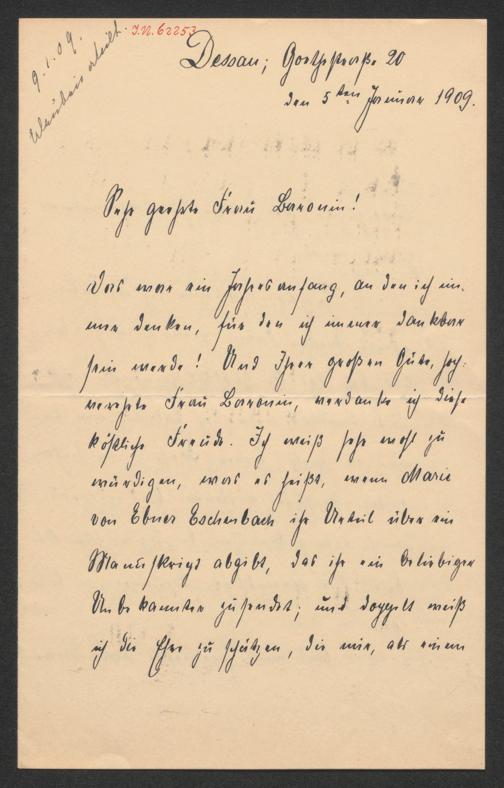 9.1.09.
erteilt.
I.N. 62253
Dessau, Goethestraße 20
den 5ten Januar 1909.
Sehr geehrte Frau Baronin!
Das war ein Jahresanfang, an den ich im-
mer denken, für den ich immer dankbar
sein werde! Und Ihrer großen Güte, hoch-
verehrte Frau Baronin, verdanke ich diese
köstliche Freude. Ich weiß sehr wohl zu
würdigen, was es heißt, wenn Marie
von Ebner Eschenbach ihr Urteil über ein
Manuskript abgibt, das ihr ein beliebiger
Unbekannter zusendet; und doppelt weiß
ich die Ehre zu schätzen, die mir, als einem